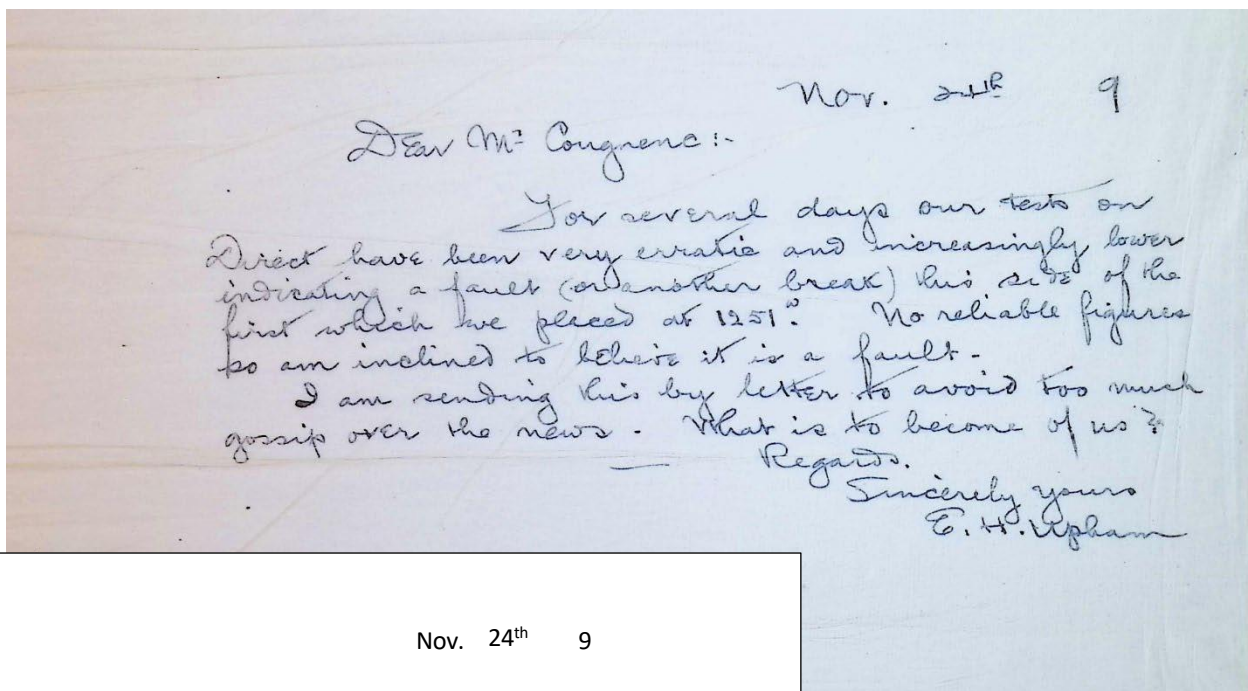 Nov. 24th 9
Dear Mr Congrene :-
For several days our tests on
Direct have been very erratic and increasingly lower
indicating a fault (or another break) this side of the
first which we placed at 1251ω. No reliable figures
so am inclined to believe it is a fault -
I am sending this by letter to avoid too much
gossip over the news - What is to become of us?
Regards.
Sincerely yours
E. H. Upham
Nov. 24th 9